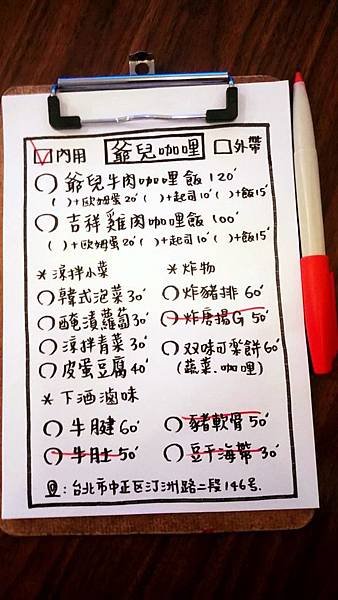 ☑內用 爺兒咖哩 □外帶
○爺兒牛肉咖哩飯 120'
( )+歐姆蛋20' ( )+起司10' ( )+飯15'
○吉祥雞肉咖哩飯 100'
( )+歐姆蛋20' ( )+起司10' ( )+飯15'
*涼拌小菜
○韓式泡菜30'
○醃漬蘿蔔30'
○涼拌青菜30'
○皮蛋豆腐40'
*炸物
○炸豬排60'
○炸唐揚G 50'
○双味可樂餅60'
(蔬菜.咖哩)
*下酒滷味
○牛腱60'
○牛肚50'
○豬軟骨50'
○豆干海帶30'
:台北市中正区汀洲路二段146号.